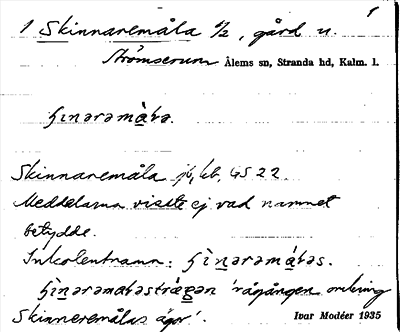 1
1 Skinnaremåla 1/2, gård u.
Strömserum Ålems sn, Stranda hd, Kalm. l.
Skinnaremåla jb, kb, GS 22
Meddelarna visste ej vad namnet
betydde.
Inkolentnamn:
'rågången omkring
Skinneremålas ägor'.
Ivar Modéer 1935